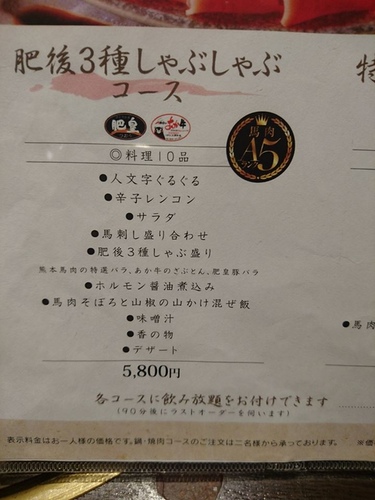 肥後3種しゃぶしゃぶ
コース
特
肥皇
あか牛
馬肉
A5
ランク
◎料理10品
●人文字ぐるぐる
●辛子レンコン
●サラダ
●馬刺し盛り合わせ
●肥後3種しゃぶ盛り
熊本馬肉の特選バラ、あか牛のざぶとん、肥皇豚バラ
●ホルモン醤油煮込み
●馬肉そぼろと山椒の山かけ混ぜ飯
●味噌汁
●馬肉
●香の物
●デザート
5,800円
各コースに飲み放題をお付けできます
(90分後にラストオーダーを伺います)
表示料金はお一人様の価格です。鍋・焼肉コースのご注文は二名様から承っております。
※価